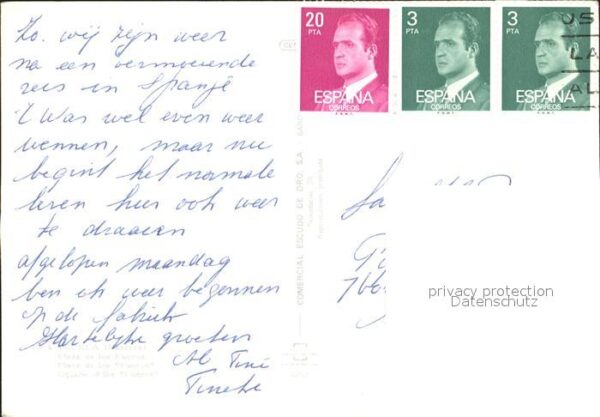 Zo. wij zijn weer
na een vermoeiende
reis in Spanje
't Was wel even weer
wennen, maar nu
begint het normale
leven hier ook weer
te draaien
afgelopen maandag
ben ik weer begonnen
op de fabriek
Hartelijke groeten
Tineke
20 PTA
ESPAÑA
CORREOS
3 PTA
ESPAÑA
CORREOS
3 PTA
ESPAÑA
CORREOS
COMERCIAL ESCUDO DE ORO, S.A.
privacy protection
Datenschutz